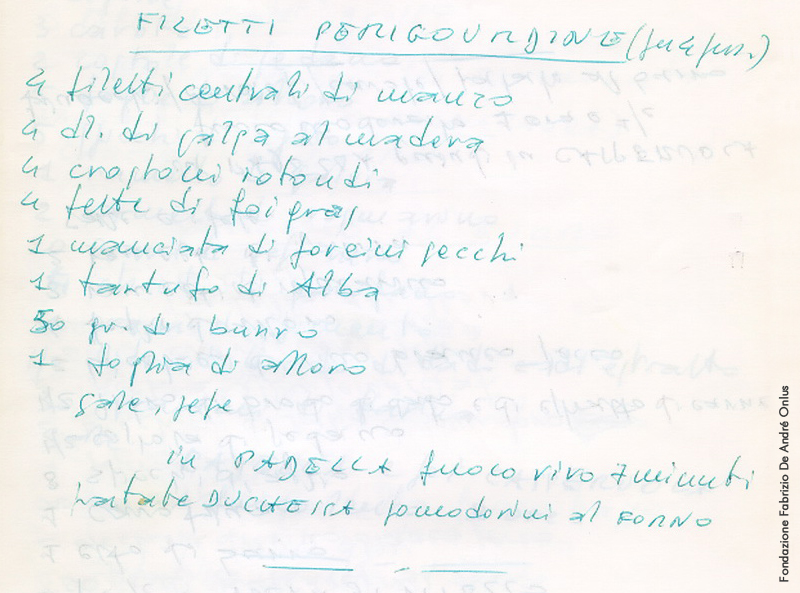 FILETTI PERIGOURDINE (per 4 pers.)
4 filetti centrali di manzo
4 dl. di salsa al madera
4 crostoni rotondi
4 fette di foi gras
1 manciata di porcini secchi
1 tartufo di Alba
50 gr. di burro
1 foglia di alloro
sale, pepe
in PADELLA fuoco vivo 7 minuti
patate DUCHESSA pomodorini al FORNO
Fondazione Fabrizio De André Onlus